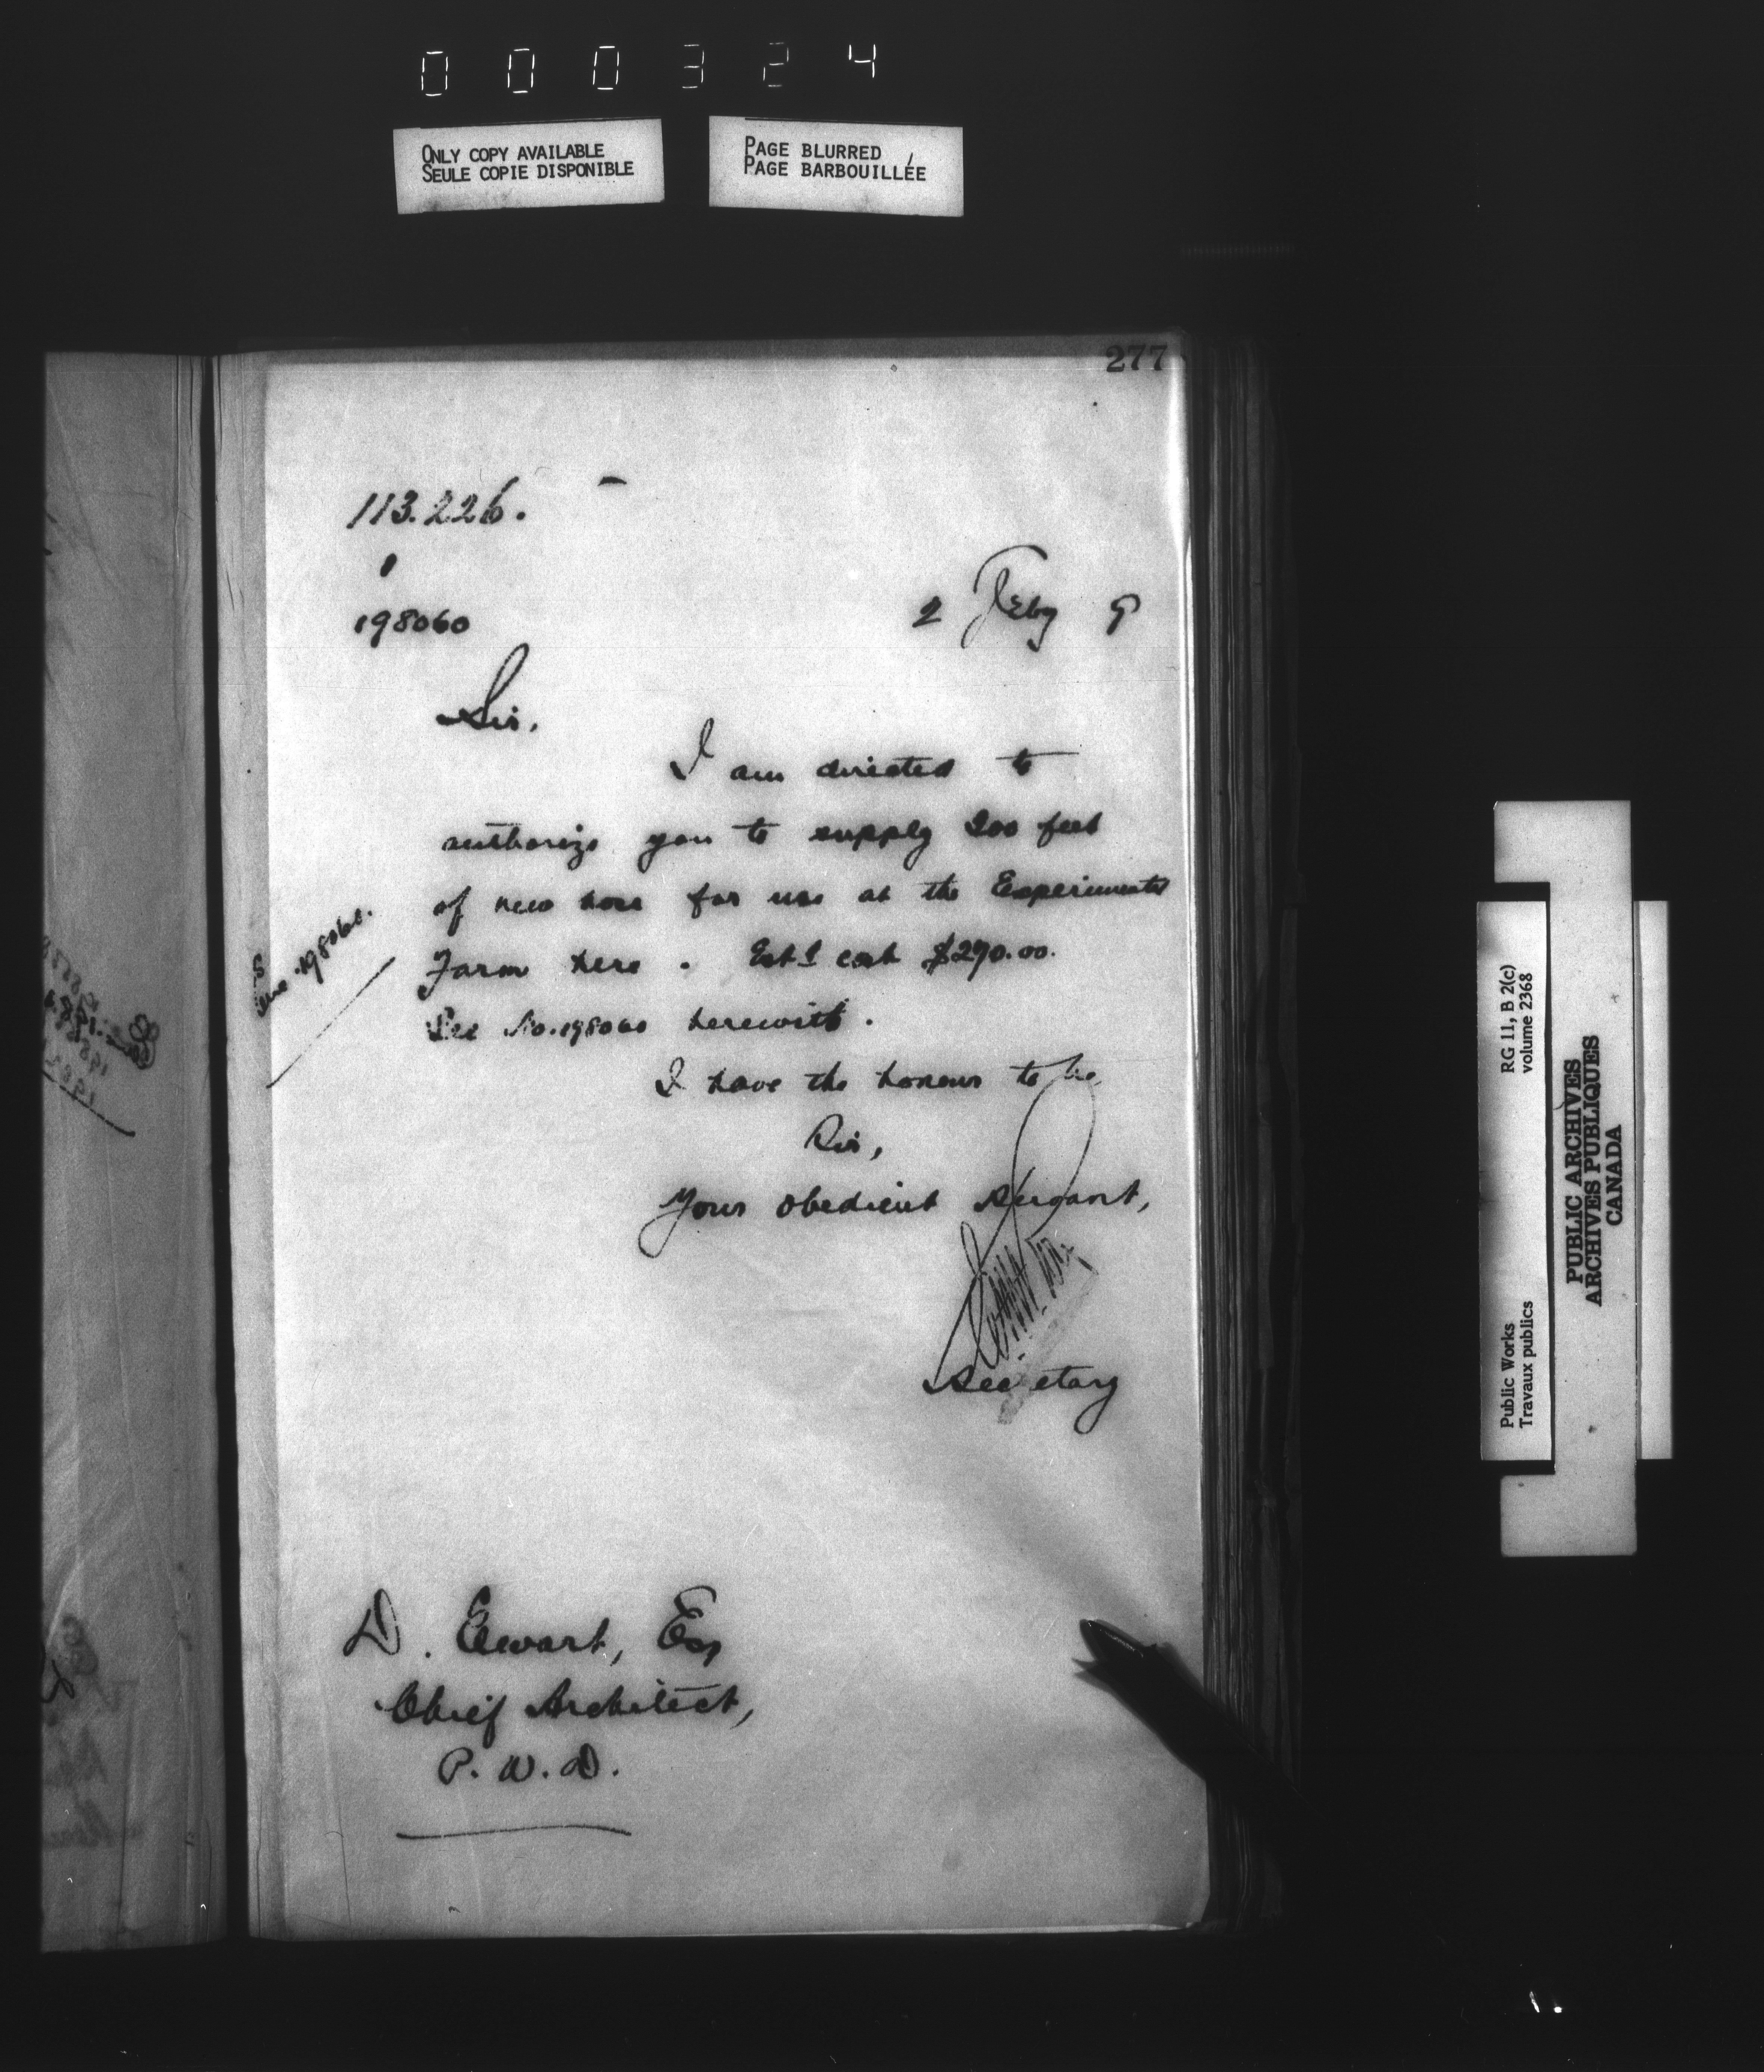 000324
ONLY COPY AVAILABLE
SEULE COPIE DISPONIBLE
PAGE BLURRED
PAGE BARBOUILLÉE
277
113.226.
1
198060
2 Feby 9
Sir,
I am directed to
authorize you to supply 200 feet
of new hose for use at the Experimental
Farm here. Estd cost $290.00.
See No. 198060 herewith.
198060.
I have the honour to be
Sir,
Your obedient servant,
Secretary
D. Ewart, Esq
Chief Architect,
P.W.D.
Public Works
Travaux publics
RG 11, B 2(c)
volume 2368
PUBLIC ARCHIVES
ARCHIVES PUBLIQUES
CANADA